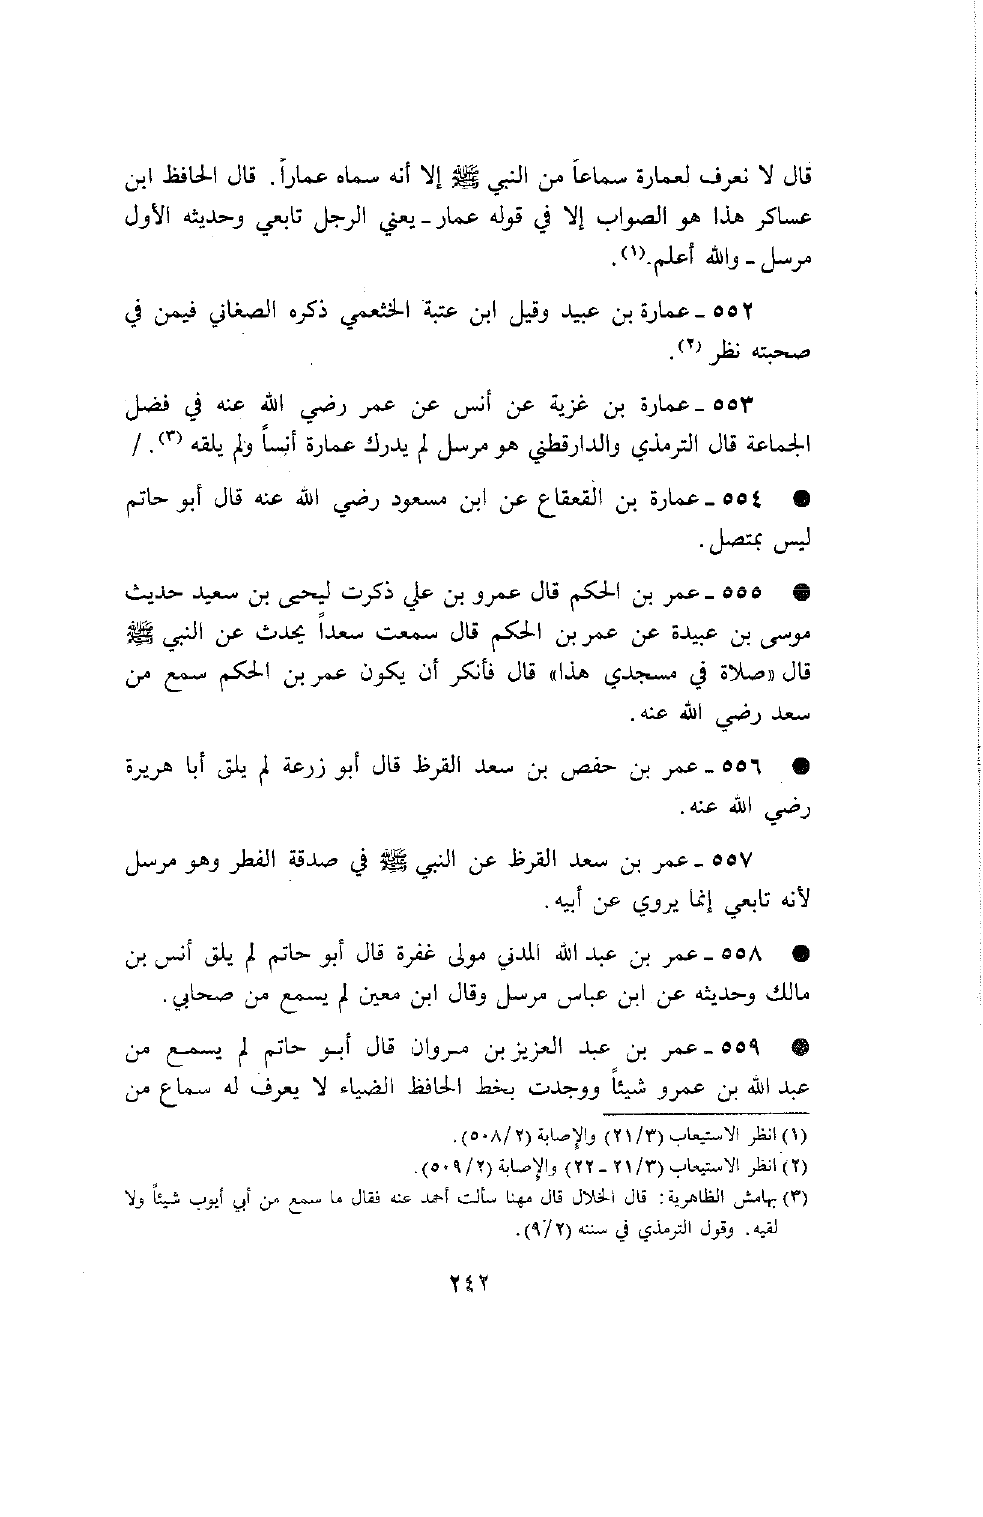 قال لا نعرف لعمارة سماعاً من النبي ﷺ إلا أنه سماه عماراً. قال الحافظ ابن
عساكر هذا هو الصواب إلا في قوله عمار ـ يعني الرجل تابعي وحديثه الأول
مرسل ـ والله أعلم.(١).
٥٥٢ ـ عمارة بن عبيد وقيل ابن عتبة الخثعمي ذكره الصغاني فيمن في
صحبته نظر (٢).
٥٥٣ ـ عمارة بن غزية عن أنس عن عمر رضي الله عنه في فضل
الجماعة قال الترمذي والدارقطني هو مرسل لم يدرك عمارة أنساً ولم يلقه (٣). /
● ٥٥٤ ـ عمارة بن القعقاع عن ابن مسعود رضي الله عنه قال أبو حاتم
ليس بمتصل.
● ٥٥٥ ـ عمر بن الحكم قال عمرو بن علي ذكرت ليحيى بن سعيد حديث
موسى بن عبيدة عن عمر بن الحكم قال سمعت سعداً يحدث عن النبي ﷺ
قال «صلاة في مسجدي هذا» قال فأنكر أن يكون عمر بن الحكم سمع من
سعد رضي الله عنه.
● ٥٥٦ ـ عمر بن حفص بن سعد القرظ قال أبو زرعة لم يلق أبا هريرة
رضي الله عنه.
٥٥٧ ـ عمر بن سعد القرظ عن النبي ﷺ في صدقة الفطر وهو مرسل
لأنه تابعي إنما يروي عن أبيه.
● ٥٥٨ ـ عمر بن عبد الله المدني مولى غفرة قال أبو حاتم لم يلق أنس بن
مالك وحديثه عن ابن عباس مرسل وقال ابن معين لم يسمع من صحابي.
● ٥٥٩ ـ عمر بن عبد العزيز بن مروان قال أبو حاتم لم يسمع من
عبد الله بن عمرو شيئاً ووجدت بخط الحافظ الضياء لا يعرف له سماع من
(١) انظر الاستيعاب (٢١/٣) والإصابة (٥٠٨/٢).
(٢) انظر الاستيعاب (٢١/٣ ـ ٢٢) والإصابة (٥٠٩/٢).
(٣) بهامش الظاهرية: قال الخلال قال مهنا سألت أحمد عنه فقال ما سمع من أبي أيوب شيئاً ولا
لقيه. وقول الترمذي في سننه (٩/٢).
٢٤٢